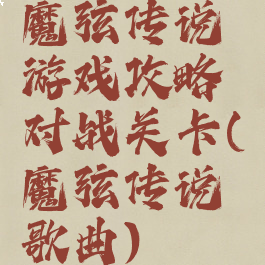 魔弦传说
游戏攻略
对战关卡(
魔弦传说
歌曲)